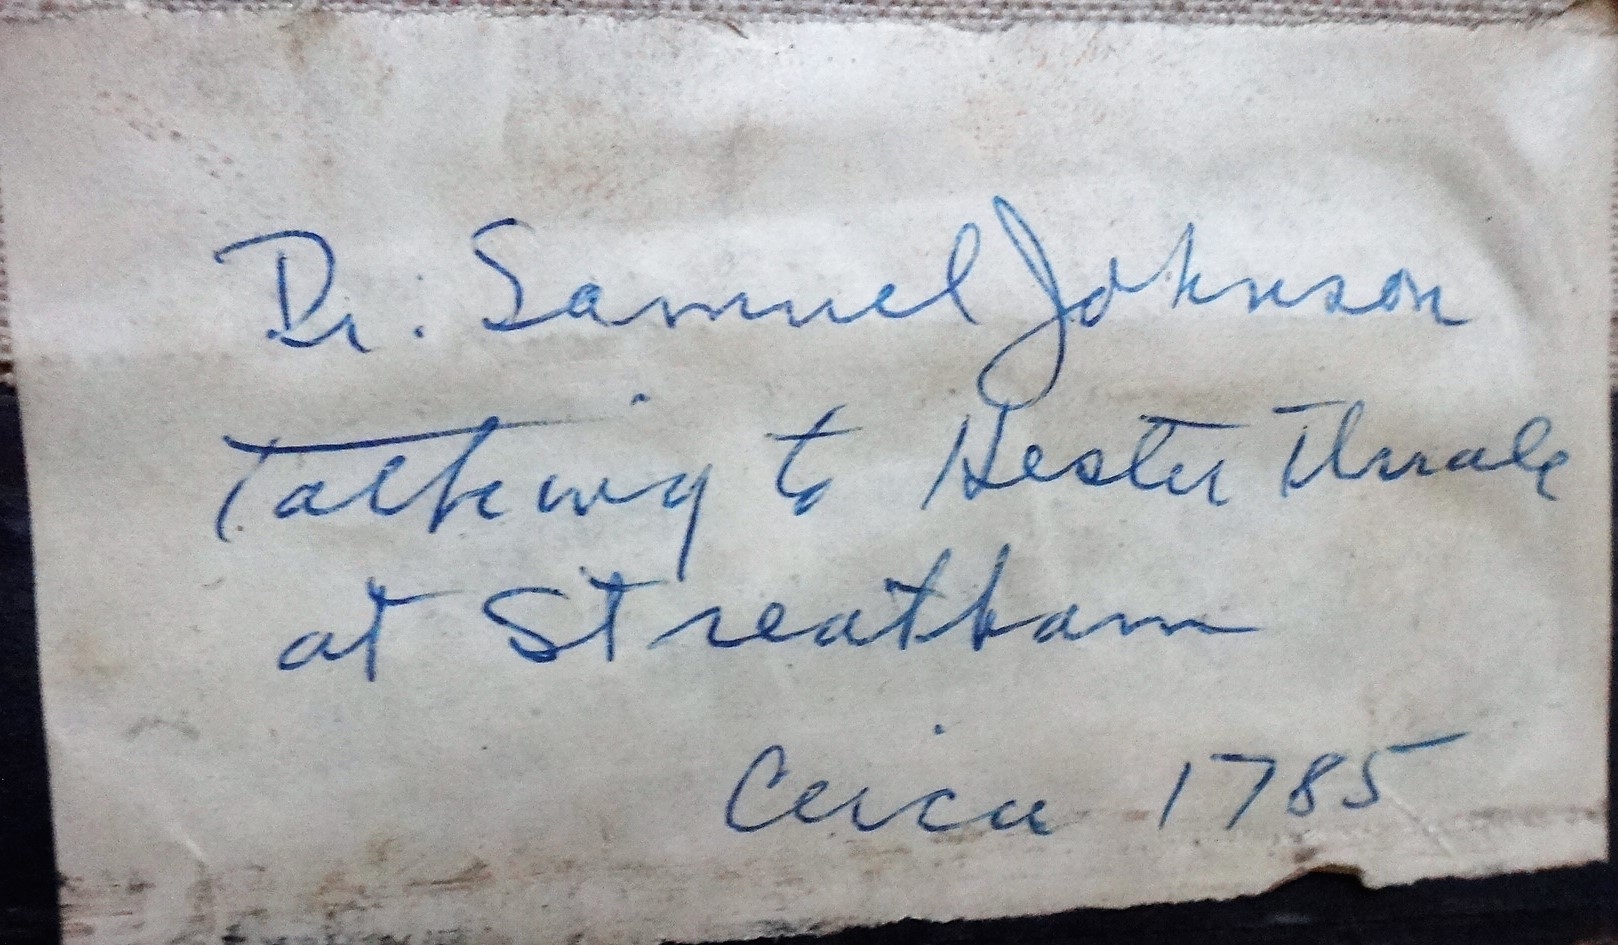 Dr. Samuel Johnson
Talking to Hester Thrale
at Streatham
Circa 1785